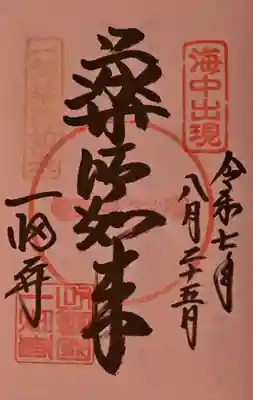 海中出現
令和七年
八月二十五日
薬師如来
一畑寺